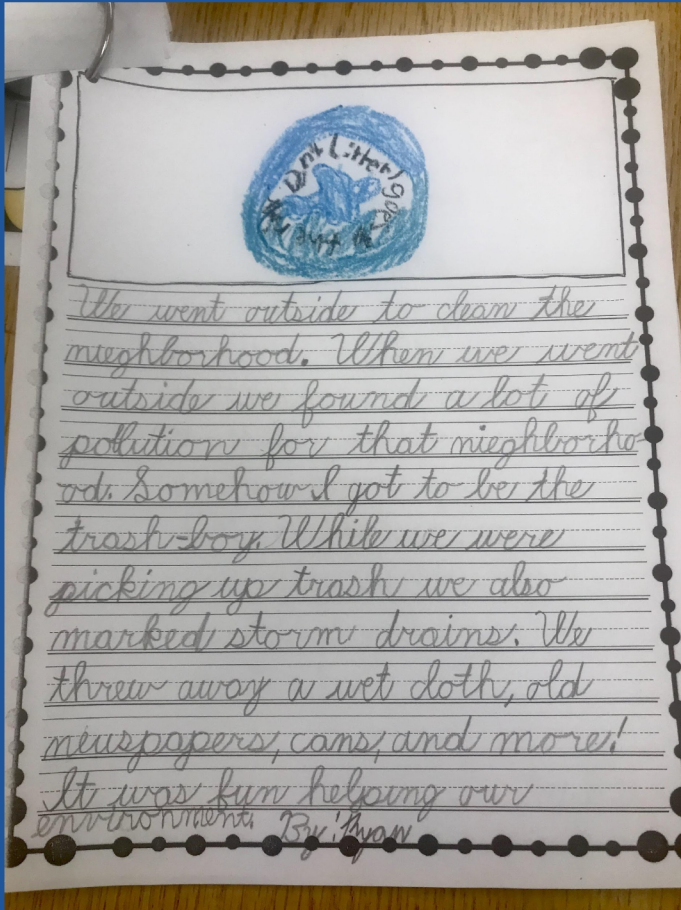 Dont Litter goes
We went outside to clean the
nieghborhood. When we went
outside we found a lot of
pollution for that nieghborho-
od. Somehow I got to be the
trash-boy. While we were
picking up trash we also
marked storm drains. We
threw away a wet cloth, old
newspapers, cans, and more!
It was fun helping our
environment. By: Ryan